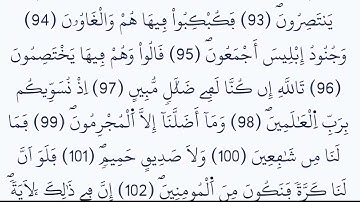 يَنتَصِرُونَۖ (93) فَكُبْكِبُواْ فِيهَا هُمْ وَالْغَاوُۥنَ (94)
وَجُنُودُ إِبْلِيسَ أَجْمَعُونَۖ (95) قَالُواْ وَهُمْ فِيهَا يَخْتَصِمُونَ
(96) تَاللَّهِ إِن كُنَّا لَفِے ضَلَٰلٖ مُّبِينٍ (97) اِذْ نُسَوِّيكُم
بِرَبِّ اِ۬لْعَٰلَمِينَۖ (98) وَمَآ أَضَلَّنَآ إِلاَّ اَ۬لْمُجْرِمُونَۖ (99) فَمَا
لَنَا مِن شَٰفِعِينَ (100) وَلَا صَدِيقٍ حَمِيمٖۖ (101) فَلَوَ اَنَّ
لَنَا كَرَّةٗ فَنَكُونَ مِنَ اَ۬لْمُومِنِينَۖ (102) إِنَّ فِے ذَٰلِكَ ءَلَايَةٗۖ